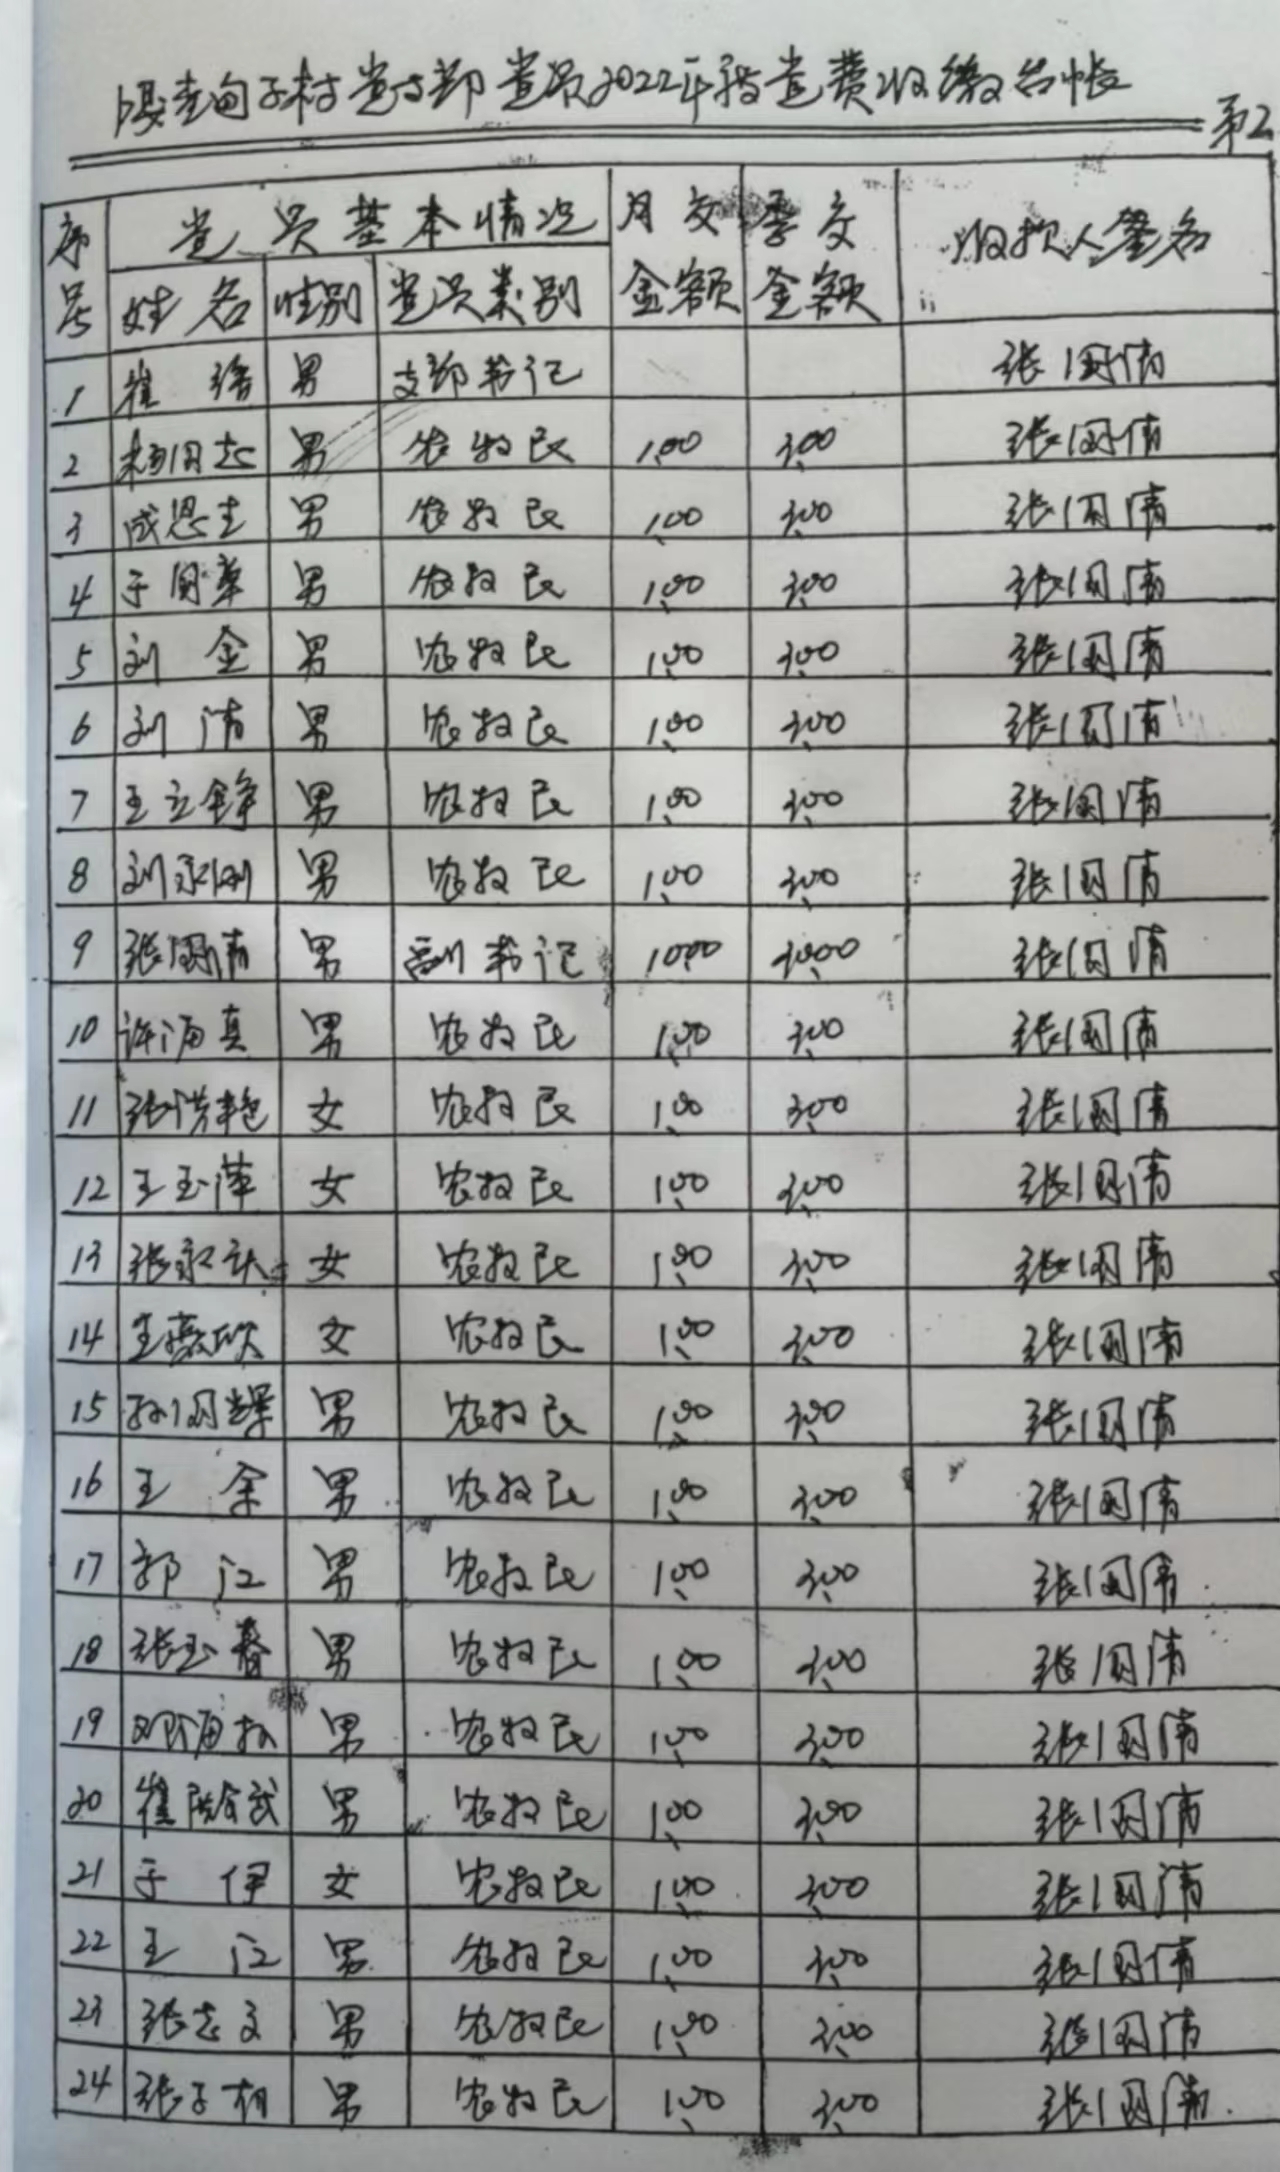 甸子村党支部党员2022年教党费收缴台帐
第2
序号 党员基本情况 月交金额 季交金额 收款人签名
姓名 性别 党员类别
1 崔 男 支部书记 张国清
2 杨国志 男 农牧民 1.00 3.00 张国清
3 成恩主 男 农牧民 1.00 3.00 张国清
4 于国军 男 农牧民 1.00 3.00 张国清
5 刘金 男 农牧民 1.00 3.00 张国清
6 刘清 男 农牧民 1.00 3.00 张国清
7 王立铮 男 农牧民 1.00 3.00 张国清
8 刘永刚 男 农牧民 1.00 3.00 张国清
9 张国清 男 副书记 10.00 30.00 张国清
10 许海真 男 农牧民 1.00 3.00 张国清
11 张洪艳 女 农牧民 1.00 3.00 张国清
12 王玉萍 女 农牧民 1.00 3.00 张国清
13 张永 女 农牧民 1.00 3.00 张国清
14 女 农牧民 1.00 3.00 张国清
15 孙国辉 男 农牧民 1.00 3.00 张国清
16 王余 男 农牧民 1.00 3.00 张国清
17 郭江 男 农牧民 1.00 3.00 张国清
18 张玉春 男 农牧民 1.00 3.00 张国清
19 邓海 男 农牧民 1.00 3.00 张国清
20 崔 武 男 农牧民 1.00 3.00 张国清
21 于伊 女 农牧民 1.00 3.00 张国清
22 王江 男 农牧民 1.00 3.00 张国清
23 张志文 男 农牧民 1.00 3.00 张国清
24 张子相 男 农牧民 1.00 3.00 张国清